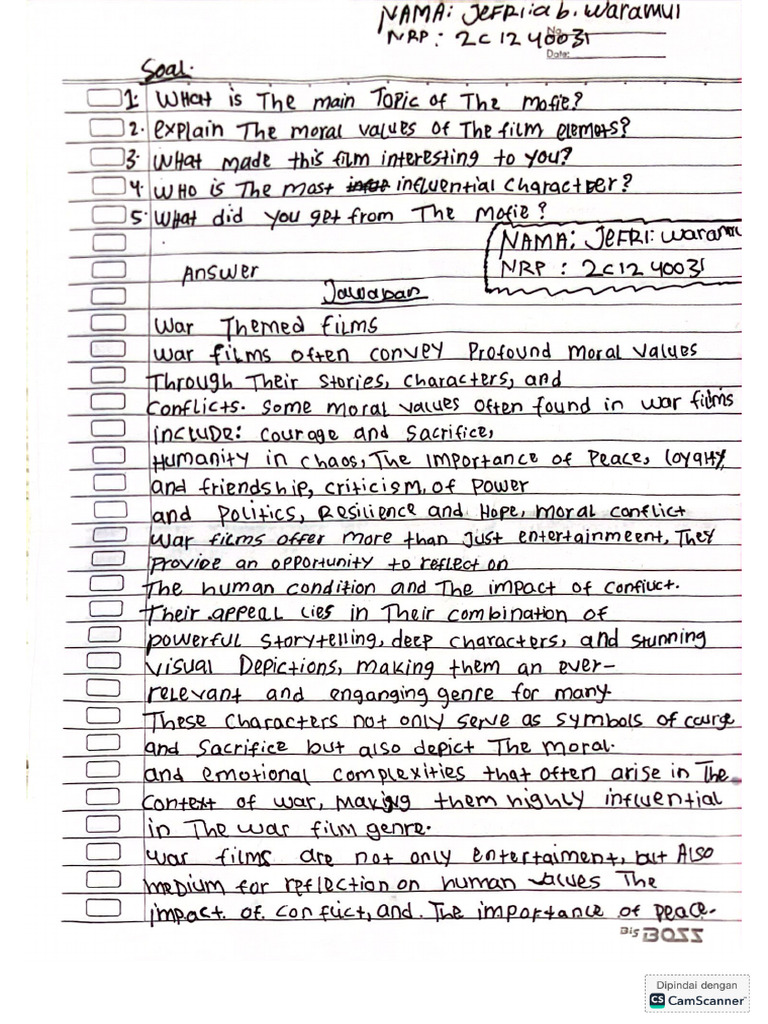 NAMA: JEFRI:a b. Waramui
NRP : 2C1240031
No
Date:
Soal.
1. What is The main Topic of The mofie?
2. explain The moral values of The film elemets?
3. What made this film interesting to you?
4. WHO is The most influential character?
5. What did you get from The mofie?
NAMA: JEFRI: Waramui
NRP : 2C1240031
Answer
Jawaban
War Themed films
War films often convey Profound moral values
Through Their stories, characters, and
conflicts. Some moral values often found in war films
include: courage and Sacrifice,
Humanity in chaos, The importance of peace, loyalty
and friendship, criticism, of power
and Politics, Resilience and Hope, moral conflict
War films offer more than Just entertainmeent, They
Provide an opportunity to reflect on
The human condition and The impact of conflict.
Their appeal lies in Their combination of
powerful storytelling, deep characters, and stunning
visual Depictions, making them an ever-
relevant and enganging genre for many.
These characters not only serve as symbols of courge
and Sacrifice but also depict The moral.
and emotional complexities that often arise in The
context of war, making them highly influential
in The war film genre.
War films are not only entertaiment, but Also
medium for reflection on human values The
impact. of. conflict, and. The importance of peace.
Big BOSS
Dipindai dengan
CS CamScanner